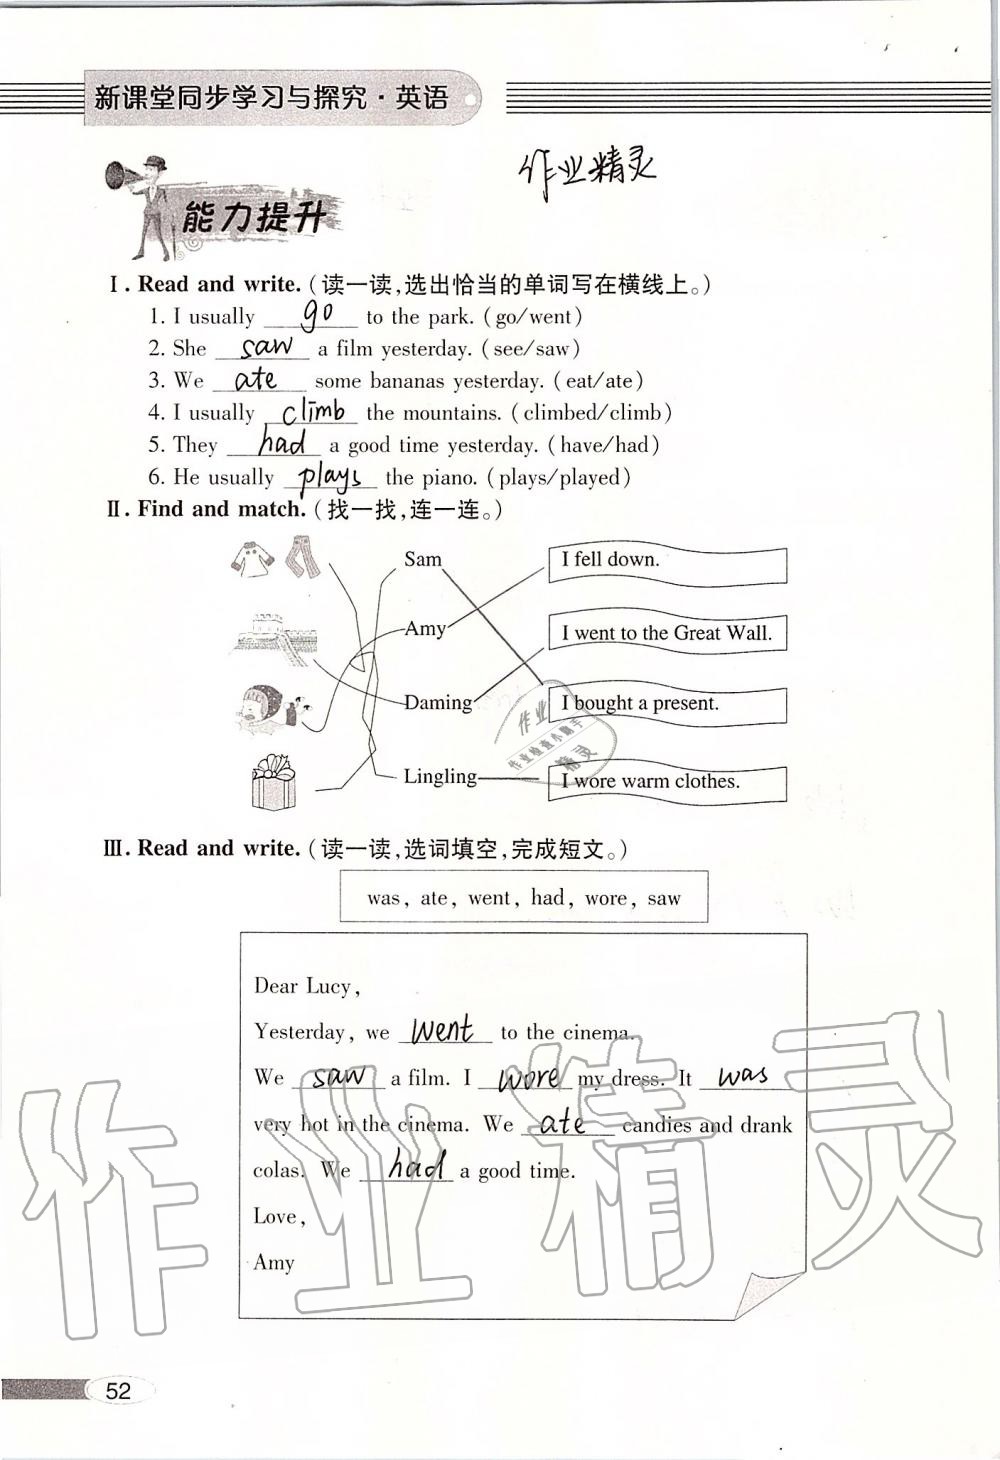 新课堂同步学习与探究·英语
作业精灵
能力提升
Ⅰ. Read and write. (读一读,选出恰当的单词写在横线上。)
1. I usually go to the park. (go/went)
2. She saw a film yesterday. (see/saw)
3. We ate some bananas yesterday. (eat/ate)
4. I usually climb the mountains. (climbed/climb)
5. They had a good time yesterday. (have/had)
6. He usually plays the piano. (plays/played)
Ⅱ. Find and match. (找一找,连一连。)
Sam I fell down.
Amy I went to the Great Wall.
Daming I bought a present.
Lingling I wore warm clothes.
作业
作业检查小助手
精灵
Ⅲ. Read and write. (读一读,选词填空,完成短文。)
was, ate, went, had, wore, saw
Dear Lucy,
Yesterday, we went to the cinema.
We saw a film. I wore my dress. It was
very hot in the cinema. We ate candies and drank
colas. We had a good time.
Love,
Amy
作业精灵
52